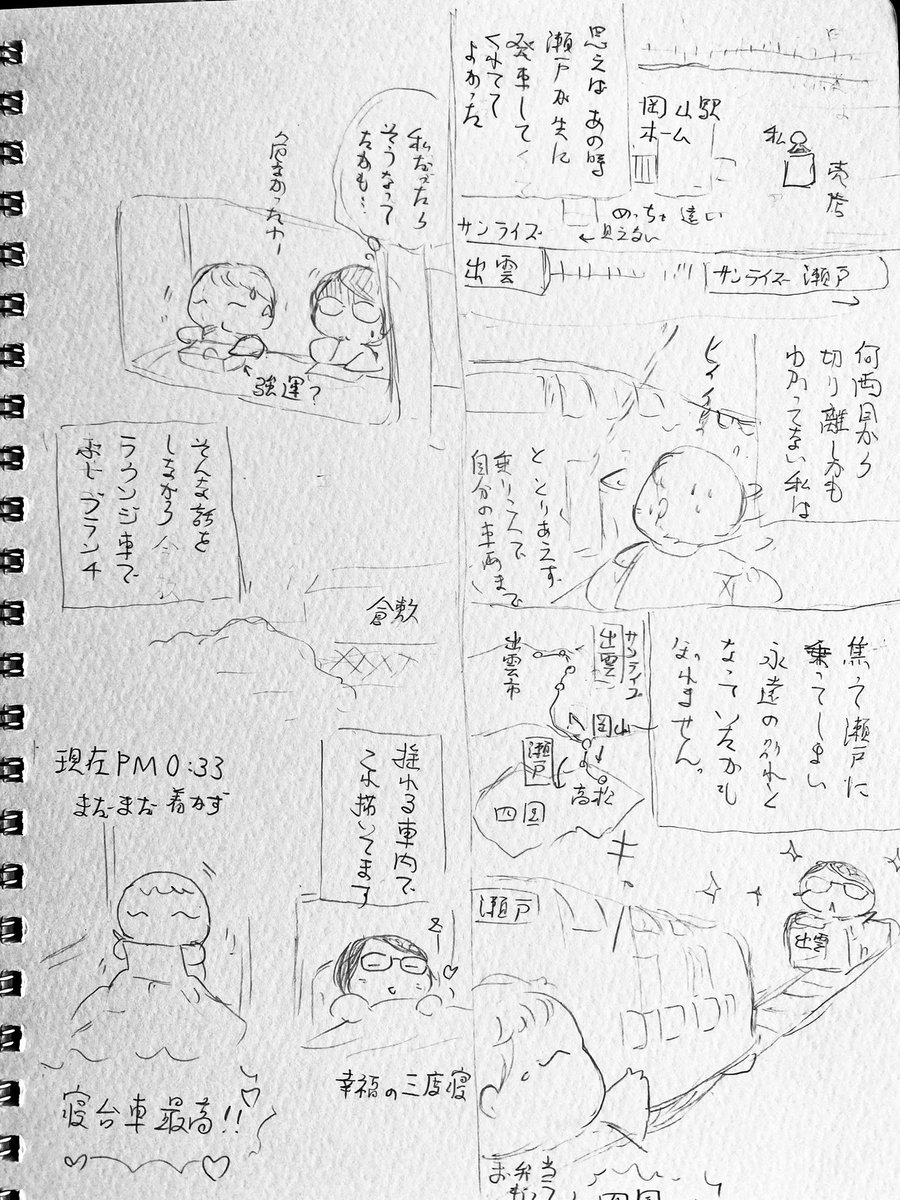 思えばあの時
瀬戸が先に
発車してく
くれてて
よかった
岡山駅
ホーム
私
売店
めっちゃ遠い
←見えない
サンライズ
出雲
サンライズ 瀬戸
何両目から
切り離しかも
わかってない私は
ヒィィ
と とりあえず
乗りこんで
自分の車両まで
焦って瀬戸に
乗ってしまい
永遠の別れと
なっていたかも
しれません。
サンライズ
出雲
出雲市
岡山
瀬戸
高松
四国
キ
瀬戸
出雲
お弁当
四国
私だったら
そうなって
たかも…
危なかったカー
強運?
そんな話を
しながら
ラウンジ車で
ブランチ
倉敷
揺れる車内で
これ描いてます
現在PM0:33
まだまだ着かず
寝台車最高!!
幸福の三度寝